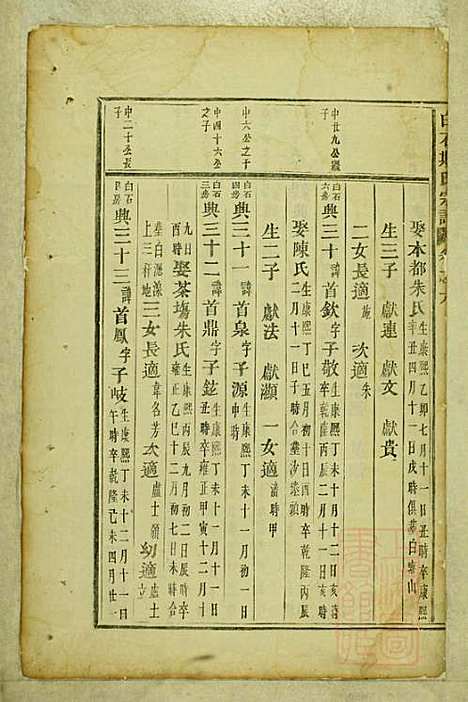 娶本都朱氏生康熙乙卯七月十一日丑時卒康熙
辛丑四月十一日戌時俱葬白
山
生三子 獻連 獻文 獻貴
二女長適 次適朱
中廿九公
白石
六房
典三十諱首欽字子敬生康熙丁未十月十二日亥時
卒乾隆丙辰二月十一日亥時
娶陳氏生康熙丁巳五月初十日酉時卒乾隆丙辰
二月十一日子時合葬沙
頭
生二子 獻法 獻灝 一女適潘時甲
中六公之子
白石
典三十一諱首泉字子源生康熙丁未十一月初一日
申時
中四十六公
之子
白石
三房
典三十二諱首鼎字子鉉生康熙丁未十一月十一日
丑時卒雍正甲寅十二月
九日
酉時娶茶塲朱氏生康熙丙辰九月初二日辰時卒
雍正乙巳十二月初七日未時合
葬白
上三
地
三女長適韋名芳次適盧士領幼適盧士立
中二十公長
子
白石
四房
典三十三諱首鳳字子岐生康熙丁未十二月十一日
午時卒乾隆己未四月廿